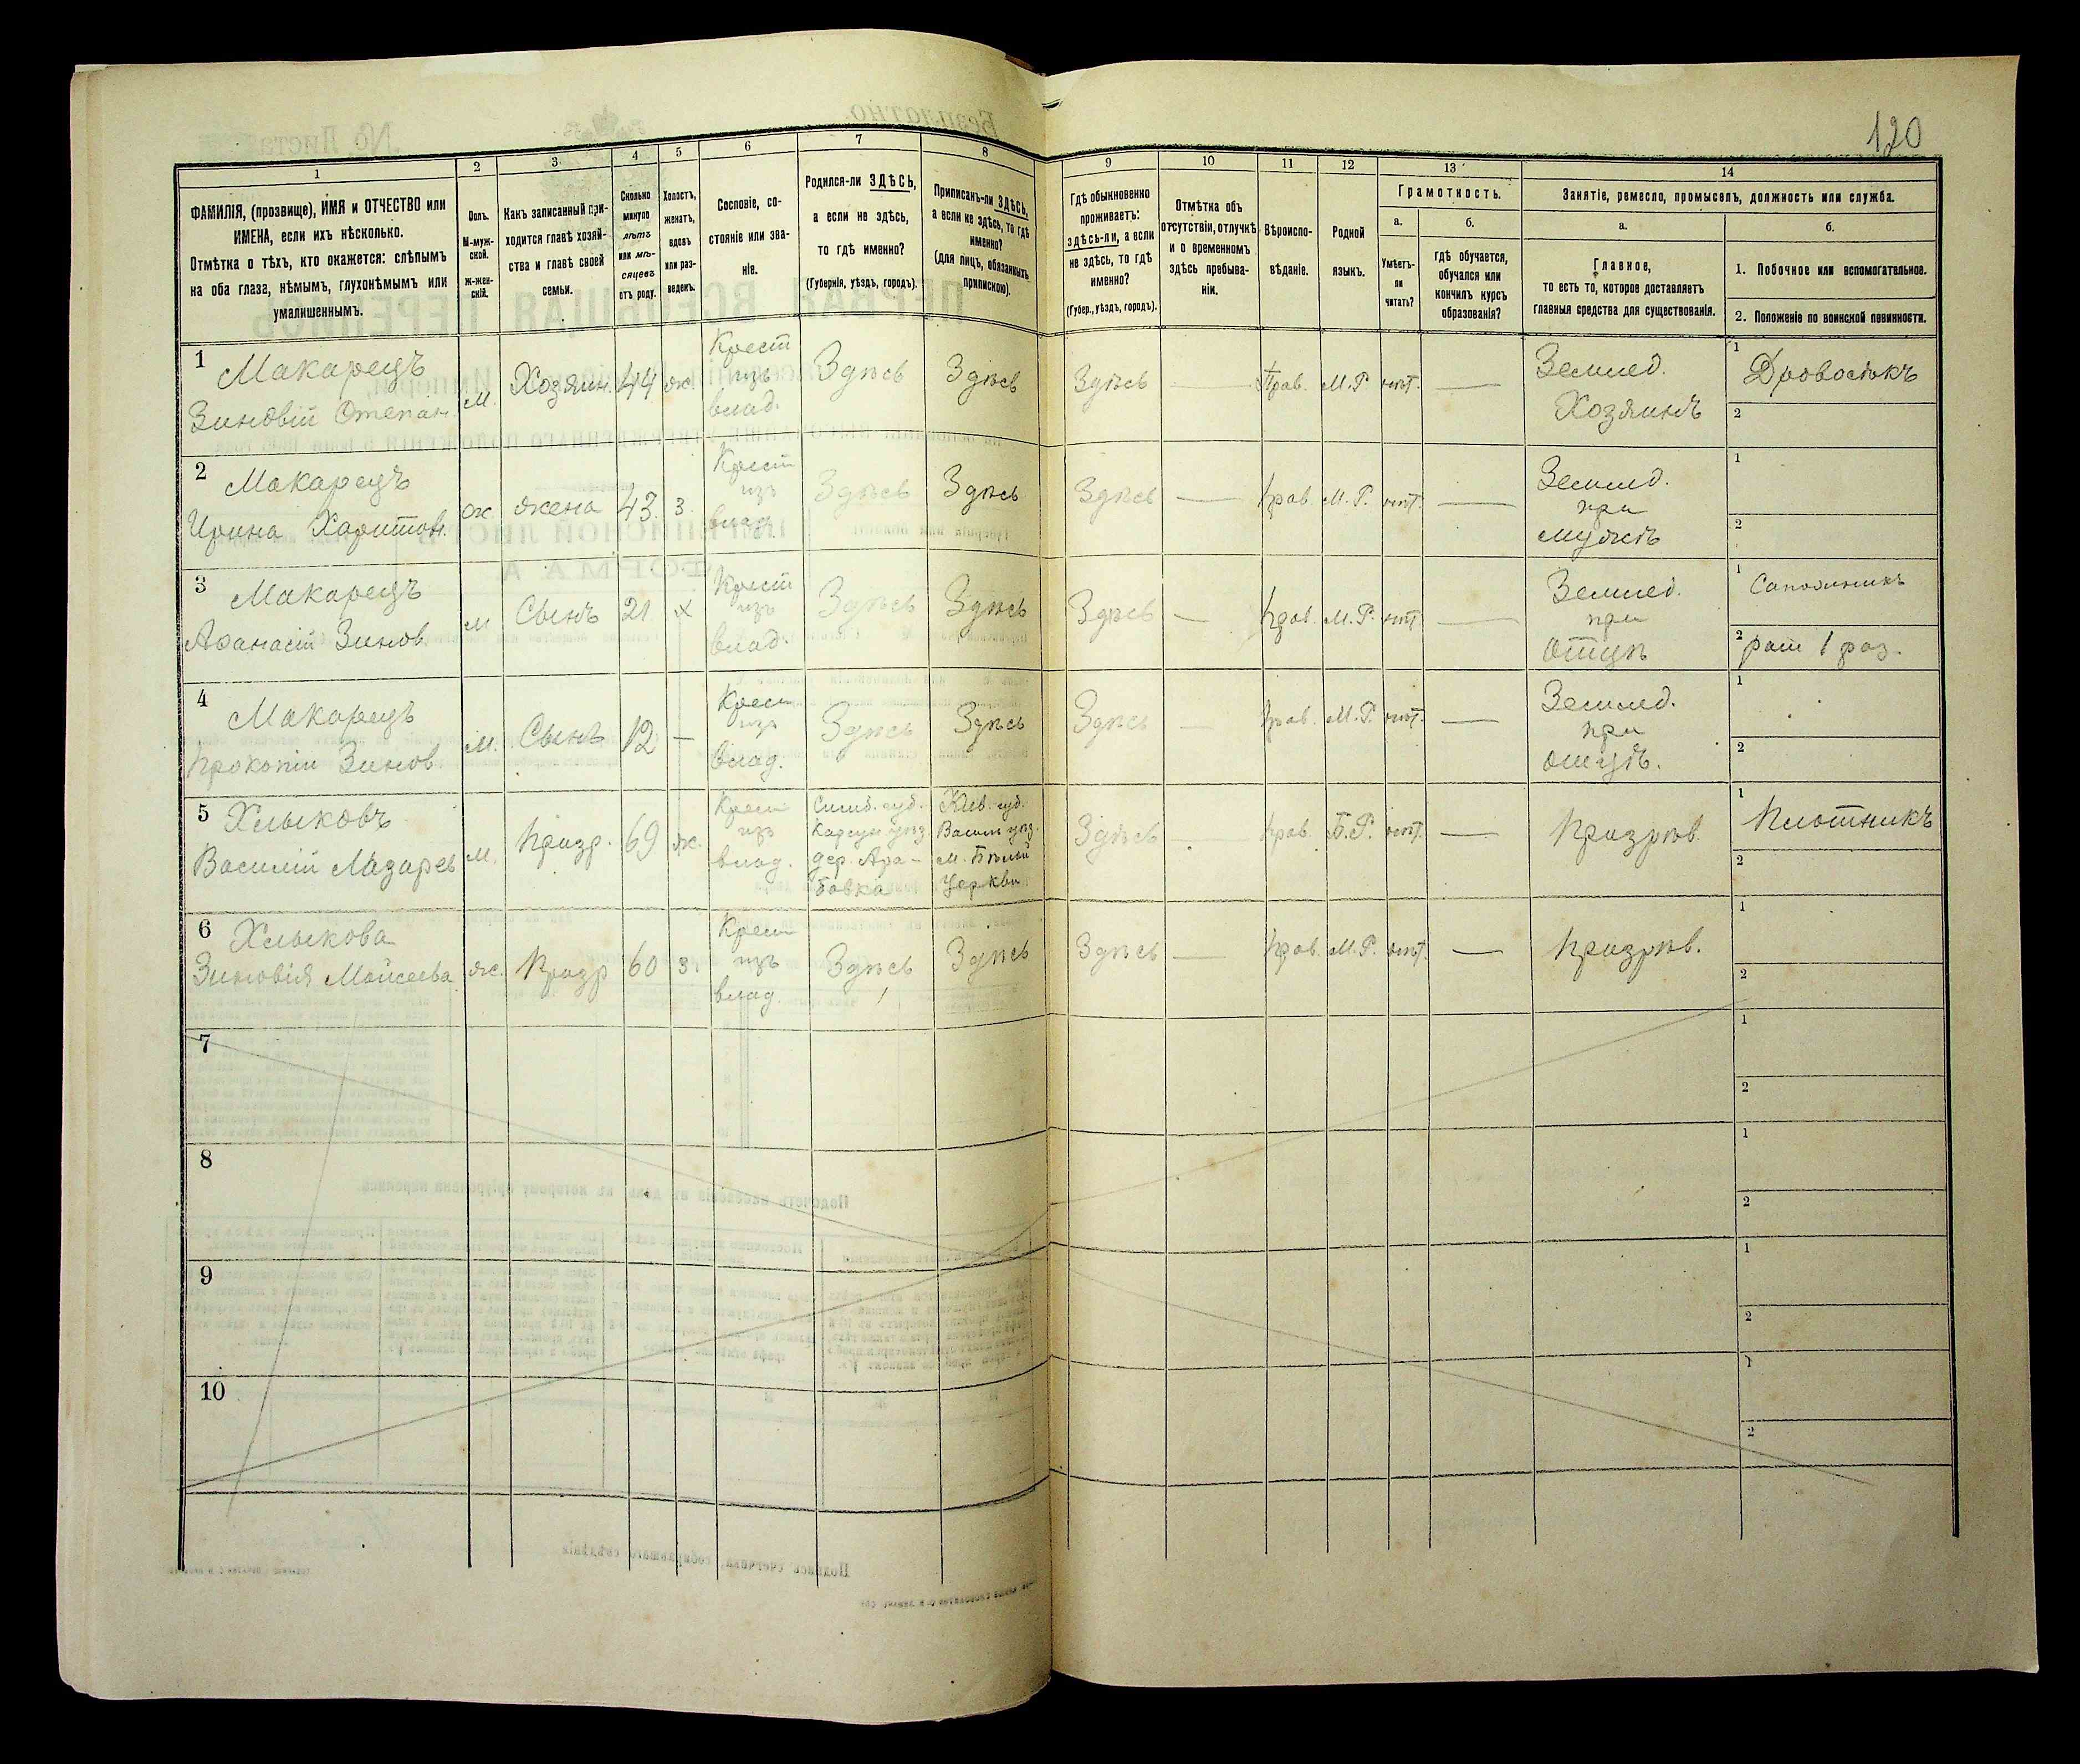 120
1
2
3
4
5
6
7
8
9
10
11
12
13
14
ФАМИЛІЯ, (прозвище), ИМЯ и ОТЧЕСТВО или
ИМЕНА, если ихъ нѣсколько.
Отмѣтка о тѣхъ, кто окажется: слѣпымъ
на оба глаза, нѣмымъ, глухонѣмымъ или
умалишеннымъ.
Полъ.
М-муж-
ской.
ж-жен-
скій.
Какъ записанный при-
ходится главѣ хозяй-
ства и главѣ своей
семьи.
Сколько
минуло
лѣтъ
или мѣ-
сяцевъ
отъ роду.
Холостъ,
женатъ,
вдовъ
или раз-
веденъ.
Сословіе, со-
стояніе или зва-
ніе.
Родился-ли ЗДѢСЬ,
а если не здѣсь,
то гдѣ именно?
(Губернія, уѣздъ, городъ).
Приписанъ-ли ЗДѢСЬ,
а если не здѣсь, то гдѣ
именно?
(для лицъ, обязанныхъ
припискою).
Гдѣ обыкновенно
проживаетъ:
здѣсь-ли, а если
не здѣсь, то гдѣ
именно?
(Губер., уѣздъ, городъ).
Отмѣтка объ
отсутствіи, отлучкѣ
и о временномъ
здѣсь пребыва-
ніи.
Вѣроиспо-
вѣданіе.
Родной
языкъ.
Грамотность.
а.
Умѣетъ-
ли
читать?
б.
гдѣ обучается,
обучался или
кончилъ курсъ
образованія?
Занятіе, ремесло, промыселъ, должность или служба.
а.
Главное,
то есть то, которое доставляетъ
главныя средства для существованія.
б.
1. Побочное или вспомогательное.
2. Положеніе по воинской повинности.
1
Макарецъ
Зиновій Степан.
м.
Хозяин.
44
ж.
Крест
изъ
влад.
Здѣсь
Здѣсь
Здѣсь
—
Прав.
М.Р.
нѣт.
—
Землед.
Хозяинъ
1
Дровосѣкъ
2
2
Макарецъ
Ирина Харитон.
ж.
жена
43.
з.
Крест
изъ
влад.
Здѣсь
Здѣсь
Здѣсь
—
прав.
М.Р.
нѣт.
—
Землед.
при
мужѣ
1
2
3
Макарецъ
Афанасій Зинов.
м
Сынъ
21
х
Крест
изъ
влад.
Здѣсь
Здѣсь
Здѣсь
—
прав.
М.Р.
нѣт.
—
Землед.
при
отцѣ
1
Сапожникъ
2
рат 1 раз.
4
Макарецъ
Прокопій Зинов.
м.
Сынъ
12
—
Крест
изъ
влад.
Здѣсь
Здѣсь
Здѣсь
—
прав.
М.Р.
нѣт.
—
Землед.
при
отцѣ.
1
2
5
Хлыковъ
Василій Лазарев
м.
Призр.
69
ж.
Крест
изъ
влад.
Симб. губ.
Карсун уѣз.
дер. Ара-
бовка
Кіев. губ.
Васил уѣз.
м. Бѣлый
Церкви
Здѣсь
—
прав.
Б.Р.
нѣт.
—
Призрѣв.
1
Плотникъ
2
6
Хлыкова
Зиновія Мойсеева
ж.
Призр
60
з.
Крест
изъ
влад.
Здѣсь
Здѣсь
Здѣсь
—
прав.
М.Р.
нѣт.
—
Призрѣв.
1
2
7
1
2
8
1
2
9
1
2
10
1
2